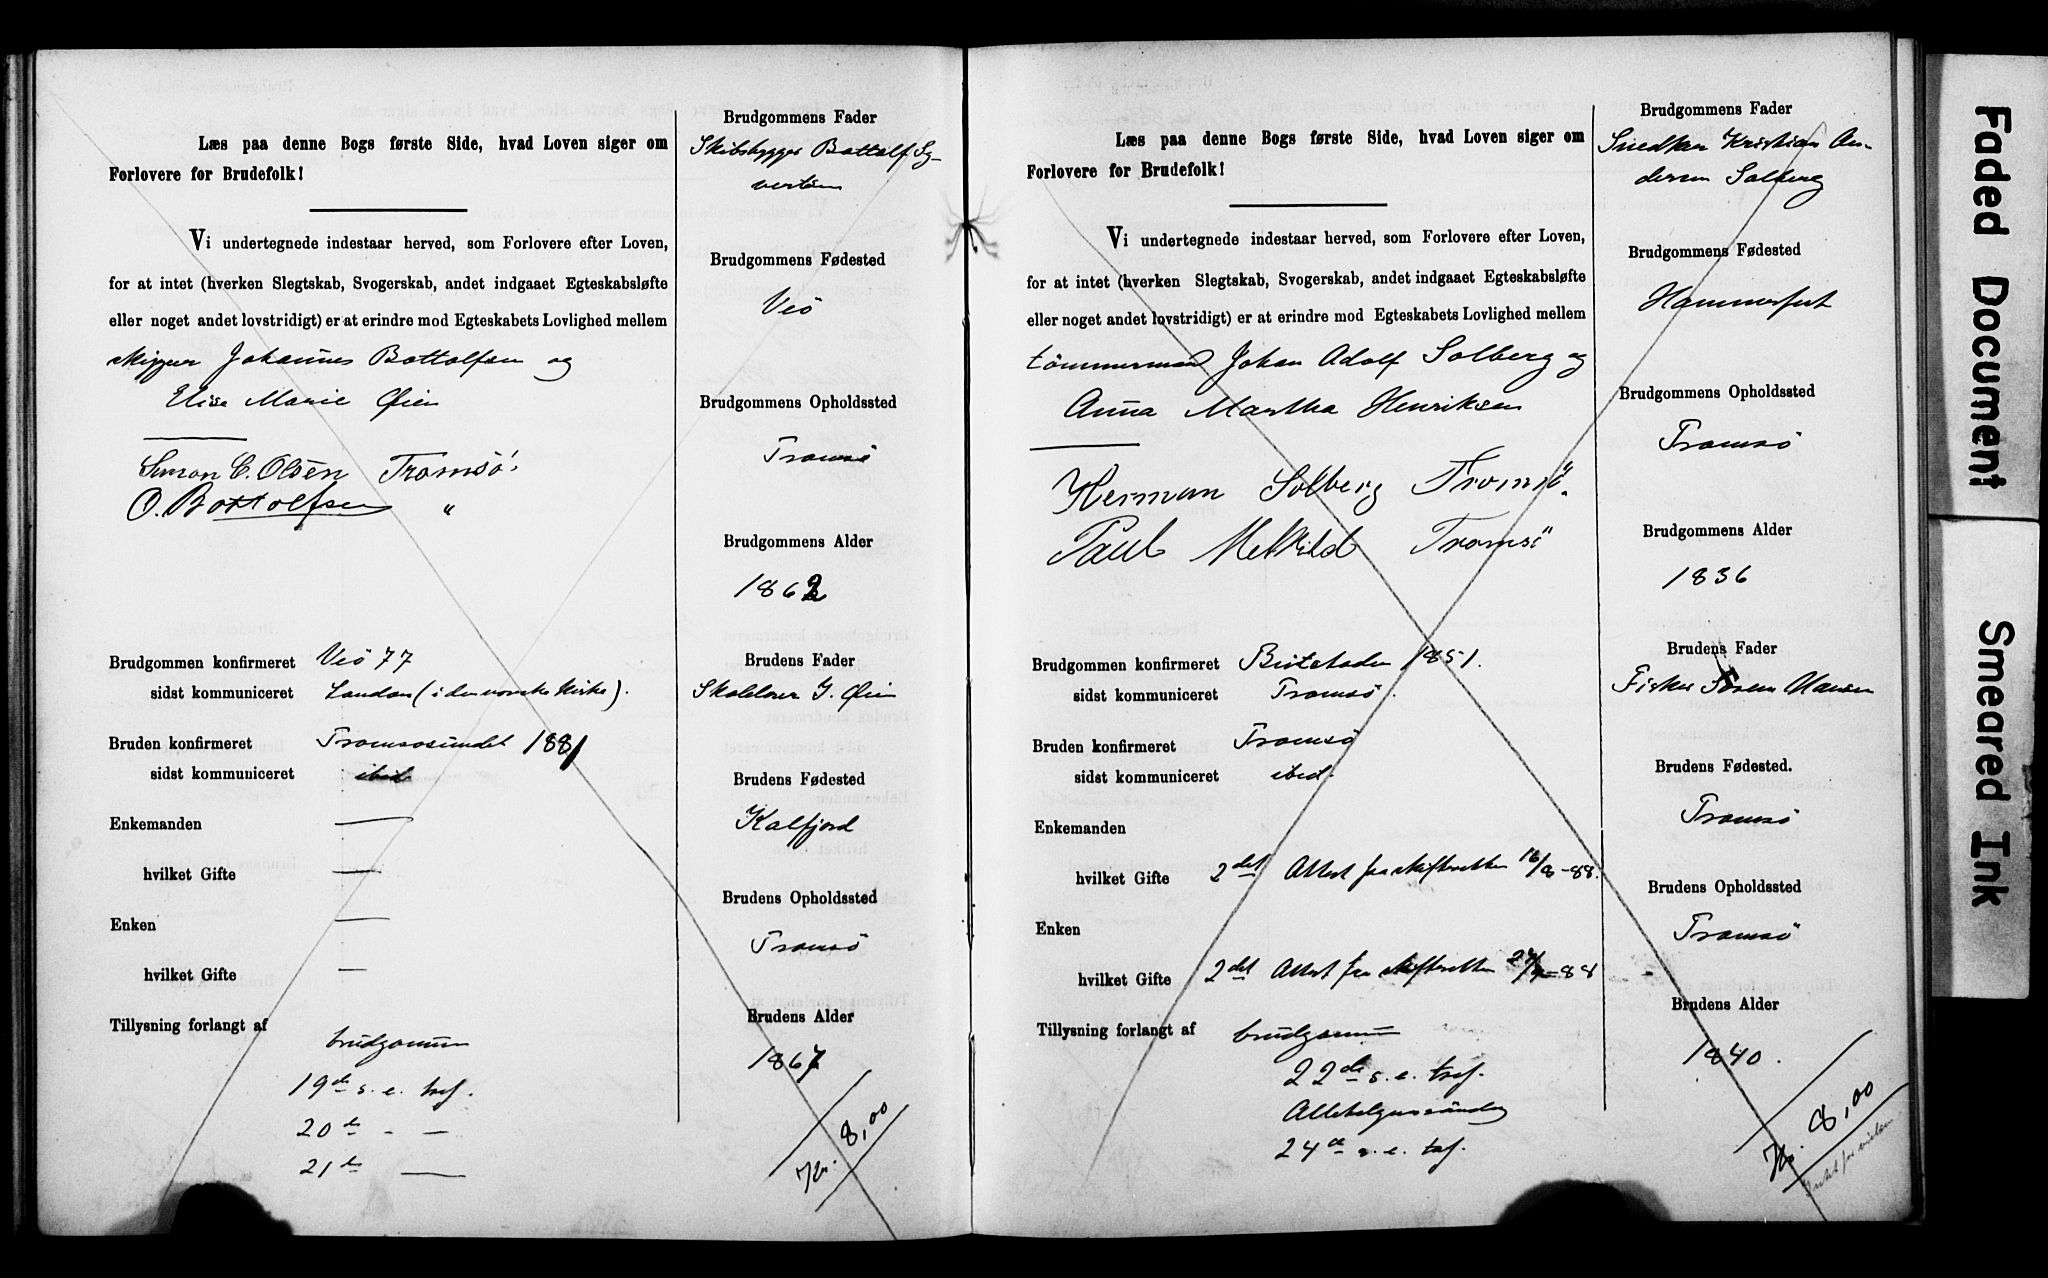 Læs paa denne Bogs første Side, hvad Loven siger om
Forlovere for Brudefolk!
Vi undertegnede indestaar herved, som Forlovere efter Loven,
for at intet (hverken Slegtskab, Svogerskab, andet indgaaet Egteskabsløfte
eller noget andet lovstridigt) er at erindre mod Egteskabets Lovlighed mellem
skipper Johannes Bottolfsen og
Elise Marie Øien
Simon C. Olsen Tromsö.
O. Bottolfsen "
Brudgommen konfirmeret Veö 77
sidst kommuniceret London (i den norske kirke).
Bruden konfirmeret Tromsösundet 1881
sidst kommuniceret ibid.
Enkemanden —
hvilket Gifte —
Enken —
hvilket Gifte —
Tillysning forlangt af
brudgommen
19de s. e. tref.
20de - —
21de —
Brudgommens Fader
Skibsbygger Bottolf Sy-
vertsen
Brudgommens Fødested
Veö
Brudgommens Opholdssted
Tromsö
Brudgommens Alder
1862
Brudens Fader
Skolelærer J. Øien
Brudens Fødested
Kalfjord
Brudens Opholdssted
Tromsö
Brudens Alder
1867
Kr. 8,00
Læs paa denne Bogs første Side, hvad Loven siger om
Forlovere for Brudefolk!
Vi undertegnede indestaar herved, som Forlovere efter Loven,
for at intet (hverken Slegtskab, Svogerskab, andet indgaaet Egteskabsløfte
eller noget andet lovstridigt) er at erindre mod Egteskabets Lovlighed mellem
tömmermand Johan Adolf Solberg og
Anna Martha Henriksen
Herman Solberg Tromsö.
Paul Melkild Tromsö
Brudgommen konfirmeret Beitstaden 1851.
sidst kommuniceret Tromsö.
Bruden konfirmeret Tromsö
sidst kommuniceret ibid.
Enkemanden
hvilket Gifte 2det Attest fra skifteretten 16/8-88.
Enken
hvilket Gifte 2det Attest fra skifteretten
Tillysning forlangt af brudgommen
22de s. e. tref.
Allehelgenssöndag
24de s. e. tref.
Brudgommens Fader
Snedker Kristian An-
dersen Solberg
Brudgommens Fødested
Hammerfest
Brudgommens Opholdssted
Tromsö
Brudgommens Alder
1836
Brudens Fader
Fisker Sören Hansen
Brudens Fødested.
Tromsö
Brudens Opholdssted
Tromsö
Brudens Alder
1840.
Kr. 8,00
Faded Document
Smeared Ink